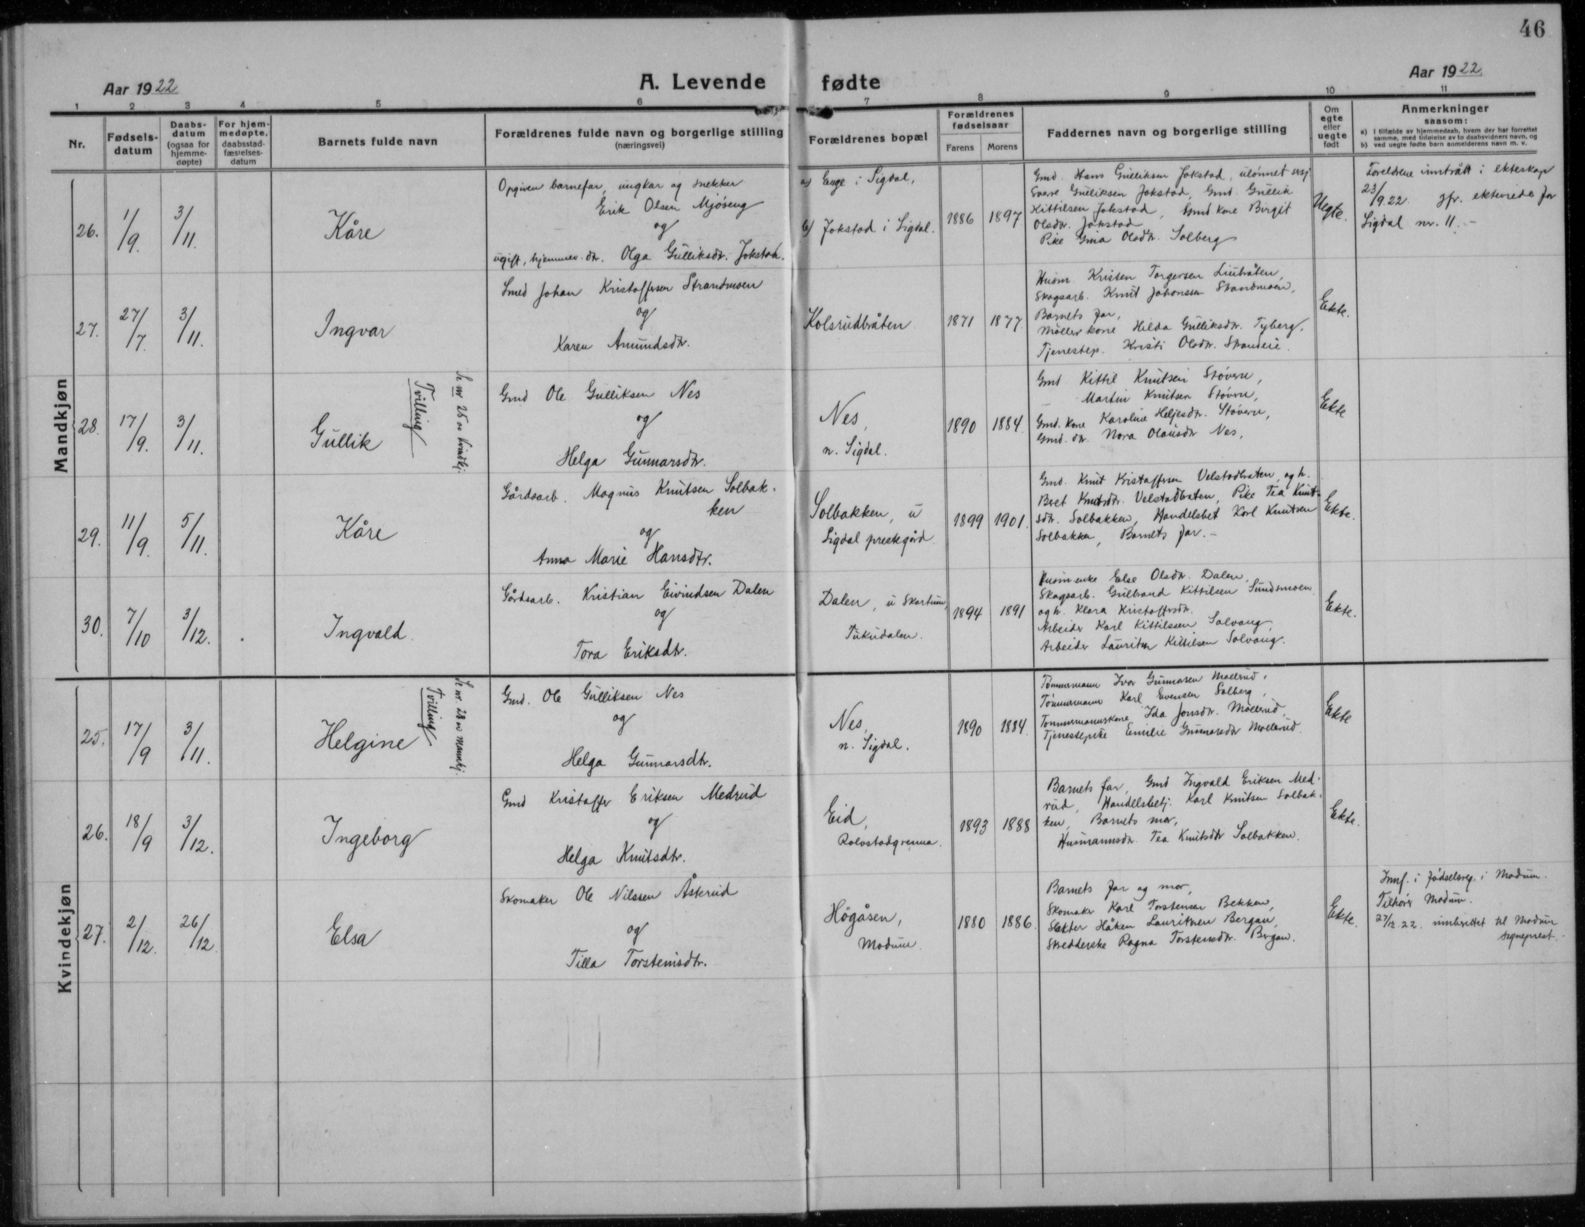 46
Aar 1922
A. Levende fødte
Aar 1922.
1 2 3 4 5 6 7 8 9 10 11
Nr.
Fødsels-
datum
Daabs-
datum
(ogsaa for
hjemme-
døpte)
For hjem-
medøpte,
daabsstad-
fæstelses-
datum
Barnets fulde navn
Forældrenes fulde navn og borgerlige stilling
(næringsvei)
Forældrenes bopæl
Forældrenes
fødselsaar
Farens Morens
Faddernes navn og borgerlige stilling
Om
egte
eller
uegte
født
Anmerkninger
saasom:
a) I tilfælde av hjemmedaab, hvem der har forrettet
samme, med tilføielse av to daabsvidners navn, og
b) ved uegte fødte barn anmelderens navn m. v.
Mandkjøn
26.
1/9.
3/11.
Kåre
Opgiven barnefar, ungkar og snekker
Erik Olsen Mjøseng
og
ugift, hjemmev. dtr. Olga Gulliksdtr. Jokstad.
a) Enge i Sigdal,
b) Jokstad i Sigdal.
1886 1897
Gmd. Hans Gulliksen Jokstad, ulønnet
Gulliksen Jokstad, Gmd. Gullik
Kittilsen Jokstad, Gmd kone Birgit
Olsdtr. Jokstad
Pike Gina Olsdtr. Solberg
Uegte.
Foreldrene inntrått i ekteskap
23/9.22. jfr. ektevide for
Sigdal nr. 11. -
27.
27/7.
3/11.
Ingvar
Smed Johan Kristoffersen Strandmoen
og
Karen Amundsdtr.
Kolsrudbråten
1871 1877
Husm. Kristen Torgersen Liubråten,
Skogsarb. Knut Johansen Skandmoen,
Barnets far,
Møller kone Hilda Gulliksdtr. Tyberg,
Tjenestep. Kristi Olsdtr. Skandeie.
Ekte.
28.
17/9.
3/11.
Gullik
Tvilling
Se nr 25 av kvindkj.
Gmd Ole Gulliksen Nes
og
Helga Gunnarsdtr.
Nes,
n. Sigdal.
1890 1884.
Gmd Kittil Knutsen Støvern,
Martin Knutsen Støvrn,
Gmd. kone Karoline Heljesdtr. Støvern,
Gmd. dtr. Nora Olausdtr Nes,
Ekte
29.
11/9.
5/11.
Kåre
Gårdsarb. Magnus Knutsen Solbak-
ken
og
Anna Marie Hansdtr.
Solbakken, u
Sigdal prestegård
1899 1901.
Gmd. Knut Kristoffersen Velstadbråten, og h.
Berit Knutsdtr. Velstadbråten, Pike Tea Knut-
sdtr. Solbakken, Handelsbet Karl Knutsen
Solbakken, Barnets far. -
Ekte.
30.
7/10
3/12.
Ingvald.
Gårdsarb. Kristian Eivindsen Dalen
og
Tora Eriksdtr.
Dalen, u Skartum,
1894 1891
Husm enke Else Olsdtr. Dalen,
Skogsarb. Gulbrand Kittilsen Sundmoen
og h. Klara Kristoffersdtr.
Arbeider Karl Kittilsen Solvang,
Arbeider Lauritz Kittilsen Solvang.
Ekte.
Kvindekjøn
25.
17/9
3/11.
Helgine
Tvilling
Se nr. 28 av mannkj.
Gmd. Ole Gulliksen Nes
og
Helga Gunnarsdtr.
Nes,
n. Sigdal.
1890 1884.
Tømmermann Ivar Gunnarsen Moelrud,
Tømmermann Karl Evensen Solberg,
Tømmermannskone Ida Jonsdtr. Moelrud,
Tjenestepike Emilie Gunnarsdtr Moelrud.
Ekte
26.
18/9
3/12.
Ingeborg
Gmd Kristoffer Eriksen Medrud
og
Helga Knutsdtr.
Eid,
Rolvstadgrenna.
1893 1888
Barnets far, Gmd Ingvald Eriksen Med-
rud, Handelsbetj. Karl Knutsen Solbak-
ken, Barnets mor,
Husmannsdtr. Tea Knutsdtr Solbakken.
Ekte.
27.
2/12.
26/12.
Elsa
Skomaker Ole Nilssen Åsterud
og
Tilla Torsteinsdtr.
Høgåsen,
Modum.
1880 1886.
Barnets far og mor,
Skomaker Karl Torstensen Bekken,
Håken Lauritsen Bergan,
Ragna Torstensdtr. Bergan.
Ekte.
Innf. i fødselsreg. i Modum.
Tilhører Modum.
27/12.22. innberettet til Modum
sogneprest.